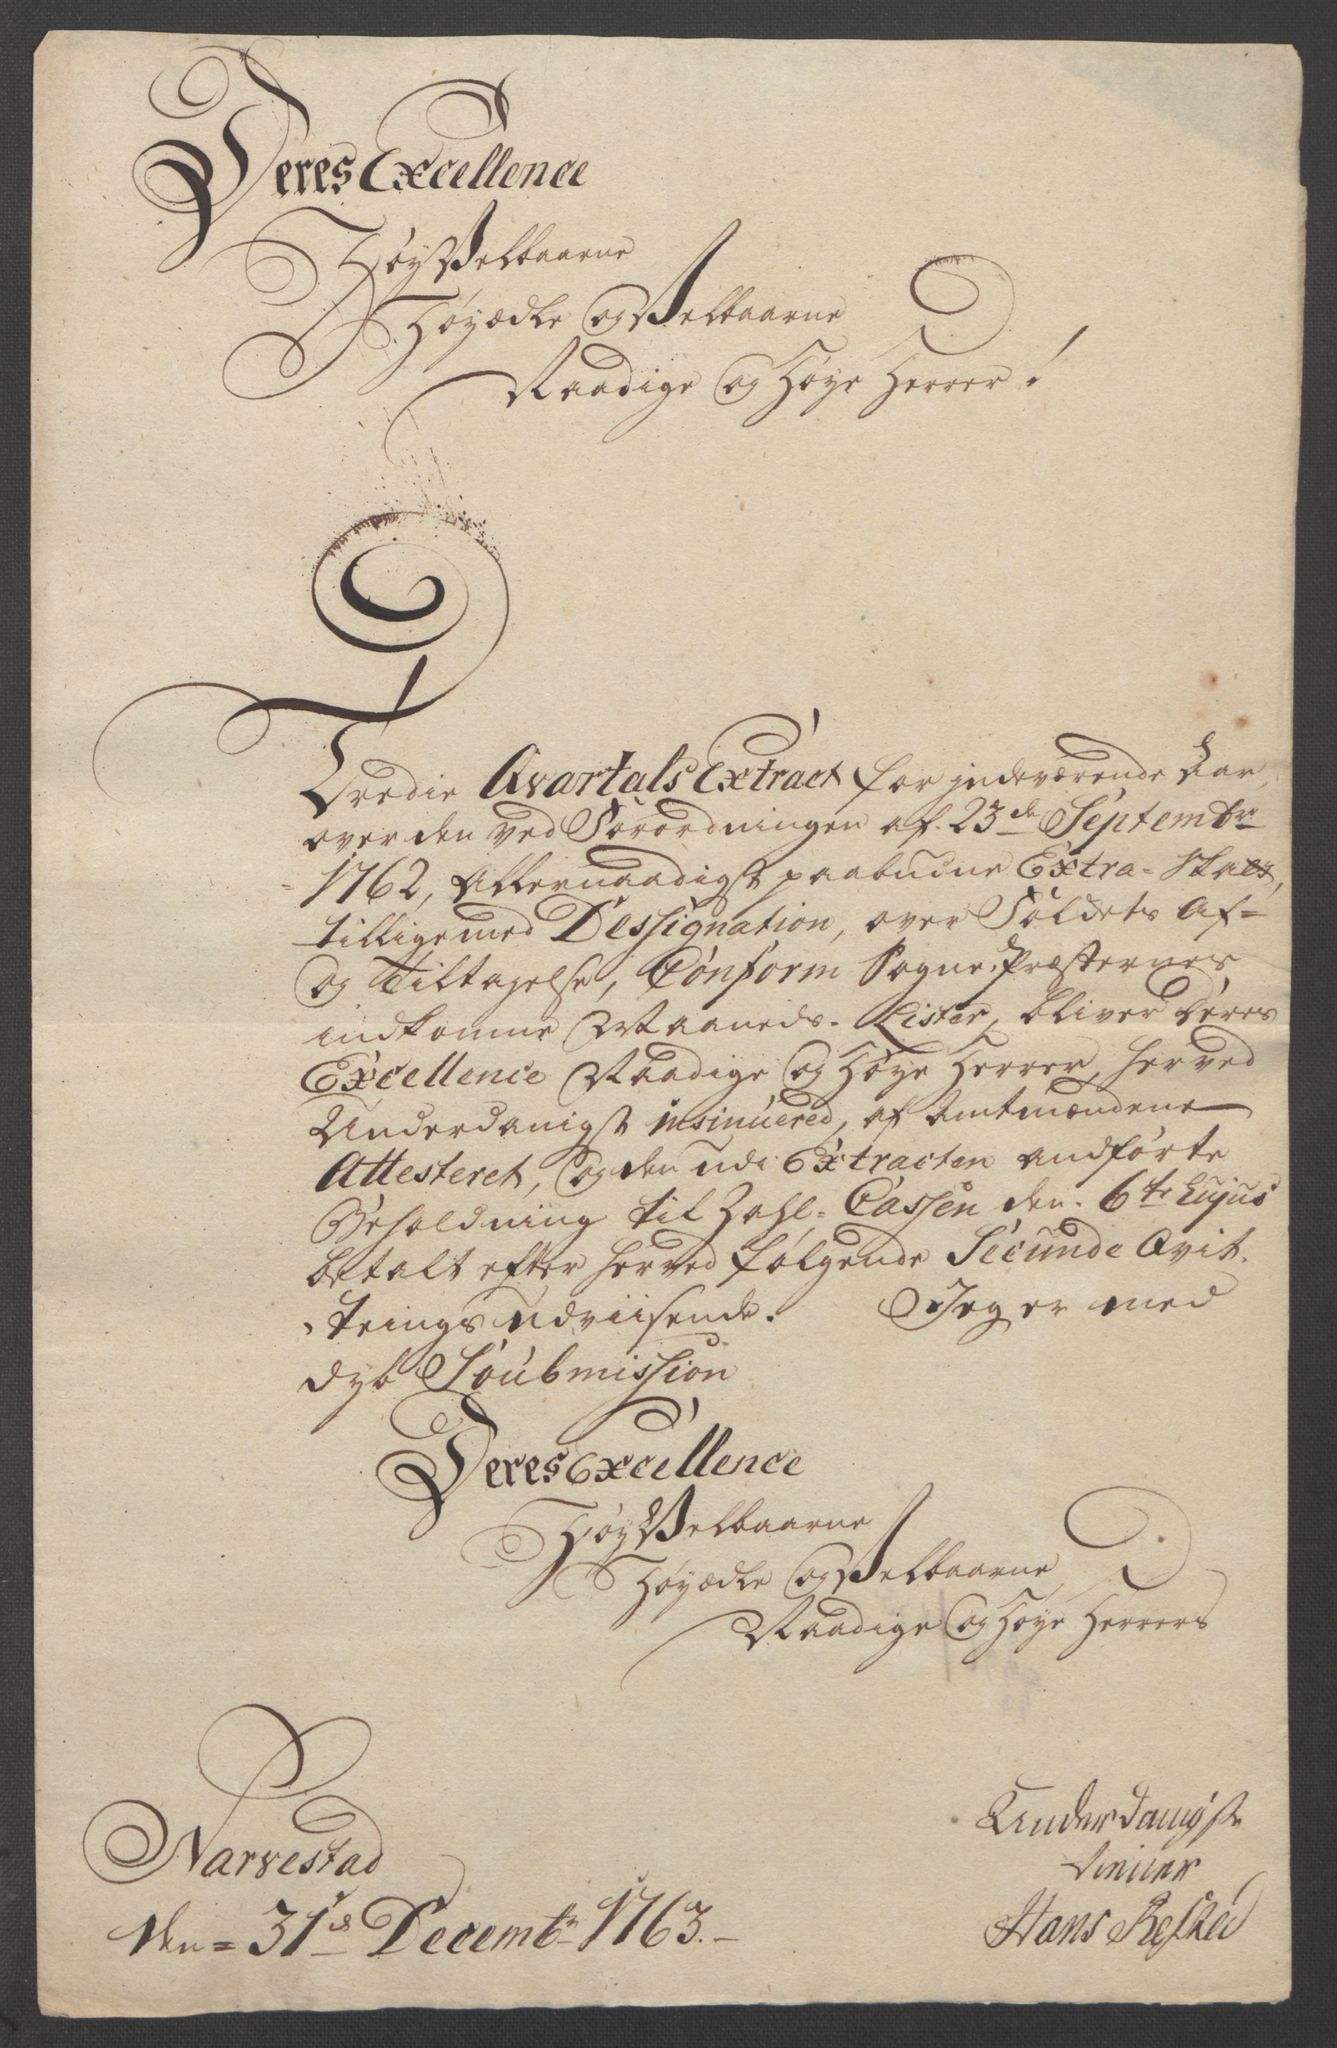 Deres Excellence
HøyVelbaarne
Høyædle og Velbaarne
Naadige og Høye Herrer!
Tredie Qvartals Extract for jndeværende Aar,
over den ved Forordningen af 23de Septembr
1762, Allernaadigst paabudne Extra-Skatt,
tilligemed Dessignation, over Folckets Af-
og Tiltagelse, Conform Sogne Præsternes
indkomne Maaneds-Lister, bliver Deres
Excellence Naadige og Høye Herrer, herved
Underdanigst insinuered, af Amtmændene
Attesteret, og den udi Extracten andførte
Beholdning til Zahl-Cassen den 6te hujus
betalt efter herved følgende Secunde Qvit-
terings udviisende. Jeg er med
dyb Soubmission
Deres Excellence
HøyVelbaarne
Høyædle og Velbaarne
Naadige og Høye Herrers
Narvestad
den 31de Decembr 1763.
Underdanigste
tienner
Hans